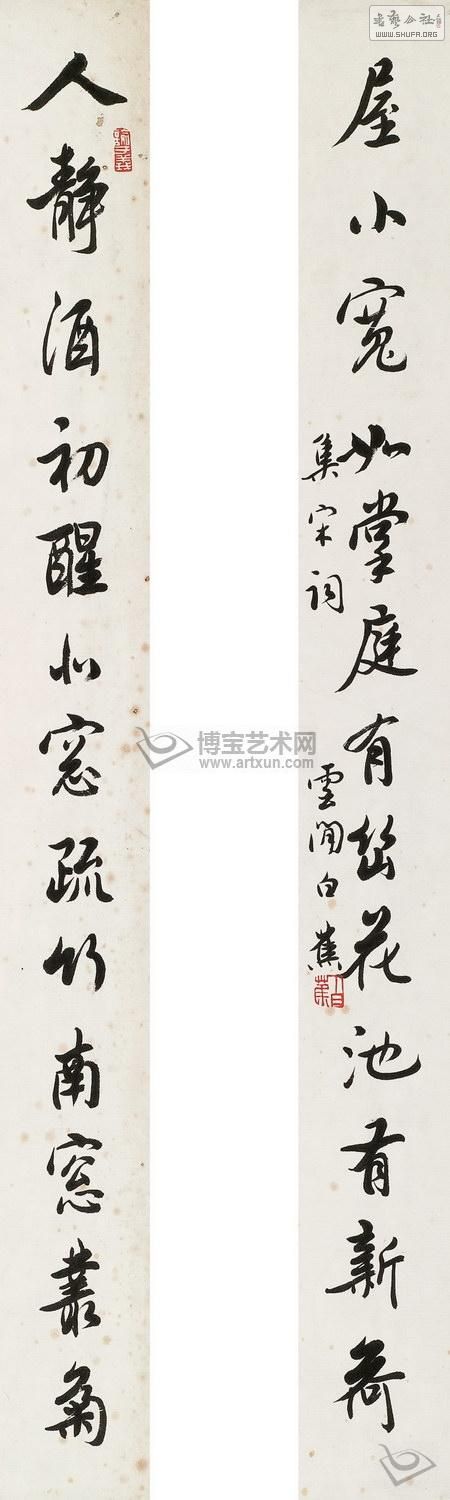 屋小寬如掌庭有幽花池有新荷
集宋詞 雲間白蕉
白蕉
人靜酒初醒北窓疏竹南窓叢菊
書藝公社
WWW.SHUFA.ORG
博宝艺术网
www.artxun.com